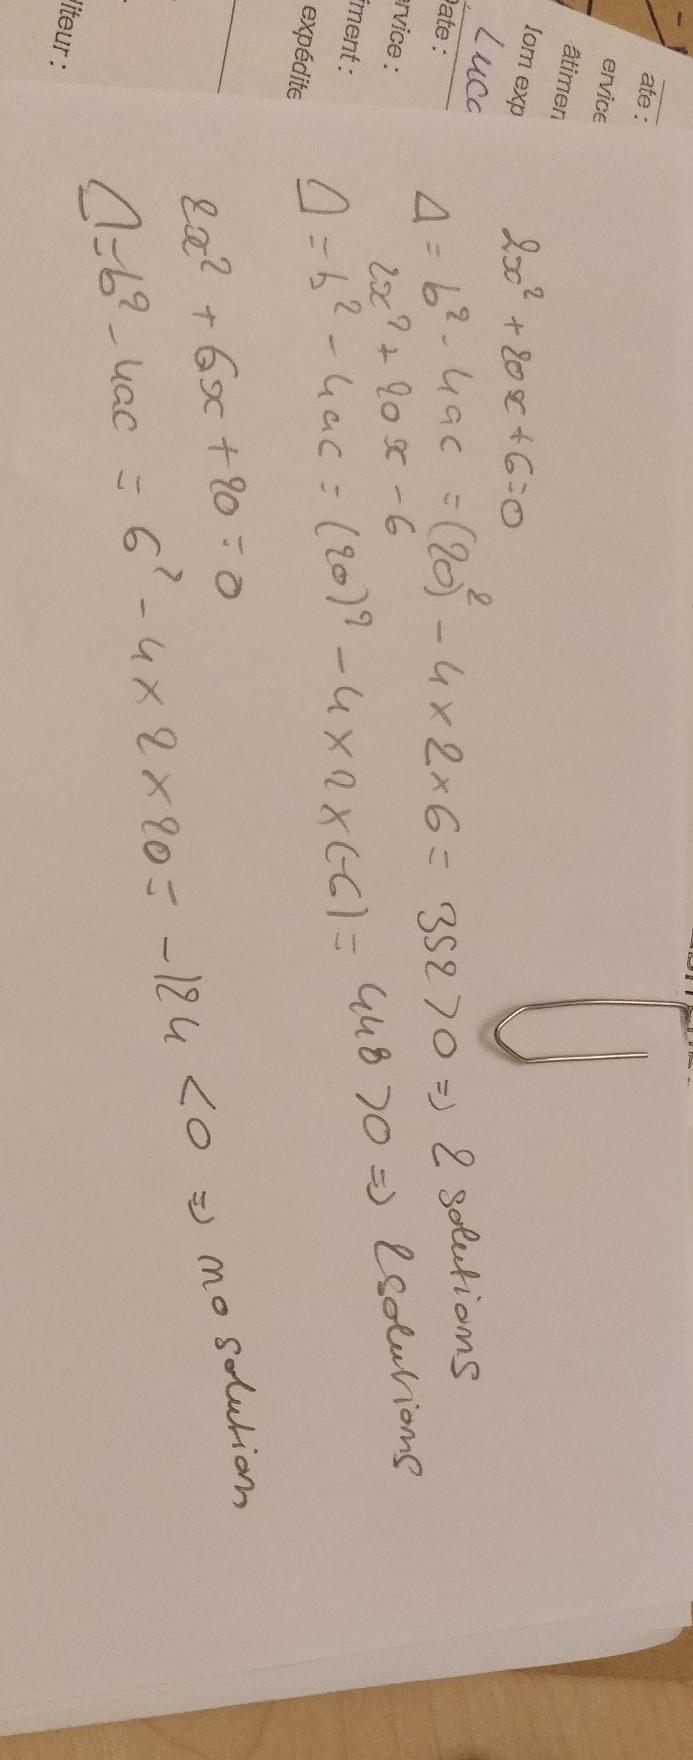 ate :
ervice
âtimen
lom exp
Date :
Lucc
ervice :
iment :
expédite
liteur :
2x² + 20x + 6 = 0
Δ = b² - 4ac = (20)² - 4 × 2 × 6 = 352 > 0 => 2 solutions
2x² + 20x - 6
Δ = b² - 4ac = (20)² - 4 × 2 × (-6) = 448 > 0 => 2 solutions
2x² + 6x + 20 = 0
Δ = b² - 4ac = 6² - 4 × 2 × 20 = -124 < 0 => no solution